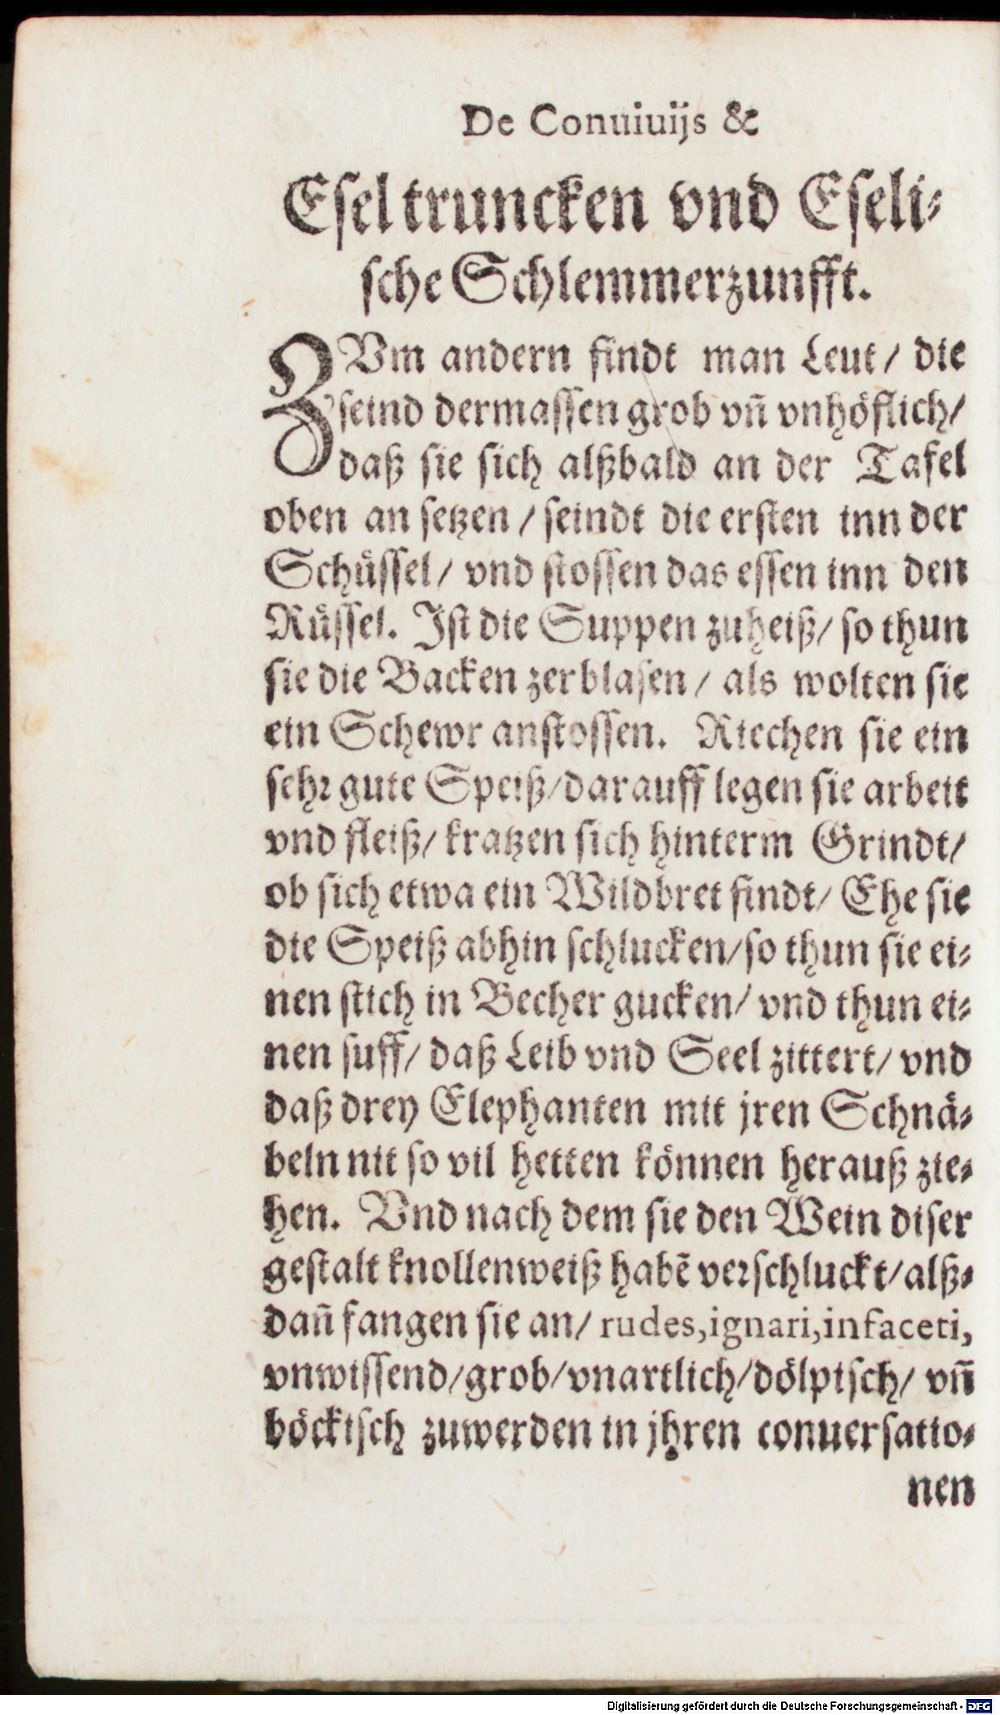 De Conuiuijs &
Esel truncken vnd Eseli⸗
sche Schlemmerzunfft.
ZVm andern findt man Leut / die
seind dermassen grob vñ vnhöflich /
daß sie sich alßbald an der Tafel
oben an setzen / seindt die ersten inn der
Schüssel / vnd stossen das essen inn den
Rüssel. Ist die Suppen zuheiß / so thun
sie die Backen zerblasen / als wolten sie
ein Schewr anstossen. Riechen sie ein
sehr gute Speiß / darauff legen sie arbeit
vnd fleiß / kratzen sich hinterm Grindt /
ob sich etwa ein Wildbret findt / Ehe sie
die Speiß abhin schlucken / so thun sie ei⸗
nen stich in Becher gucken / vnd thun ei⸗
nen suff / daß Leib vnd Seel zittert / vnd
daß drey Elephanten mit jren Schnä⸗
beln nit so vil hetten können herauß zie⸗
hen. Vnd nach dem sie den Wein diser
gestalt knollenweiß habẽ verschluckt / alß⸗
dañ fangen sie an / rudes, ignari, infaceti,
vnwissend / grob / vnartlich / dölpisch / vñ
böckisch zuwerden in jhren conuersatio⸗
nen
Digitalisierung gefördert durch die Deutsche Forschungsgemeinschaft - DFG